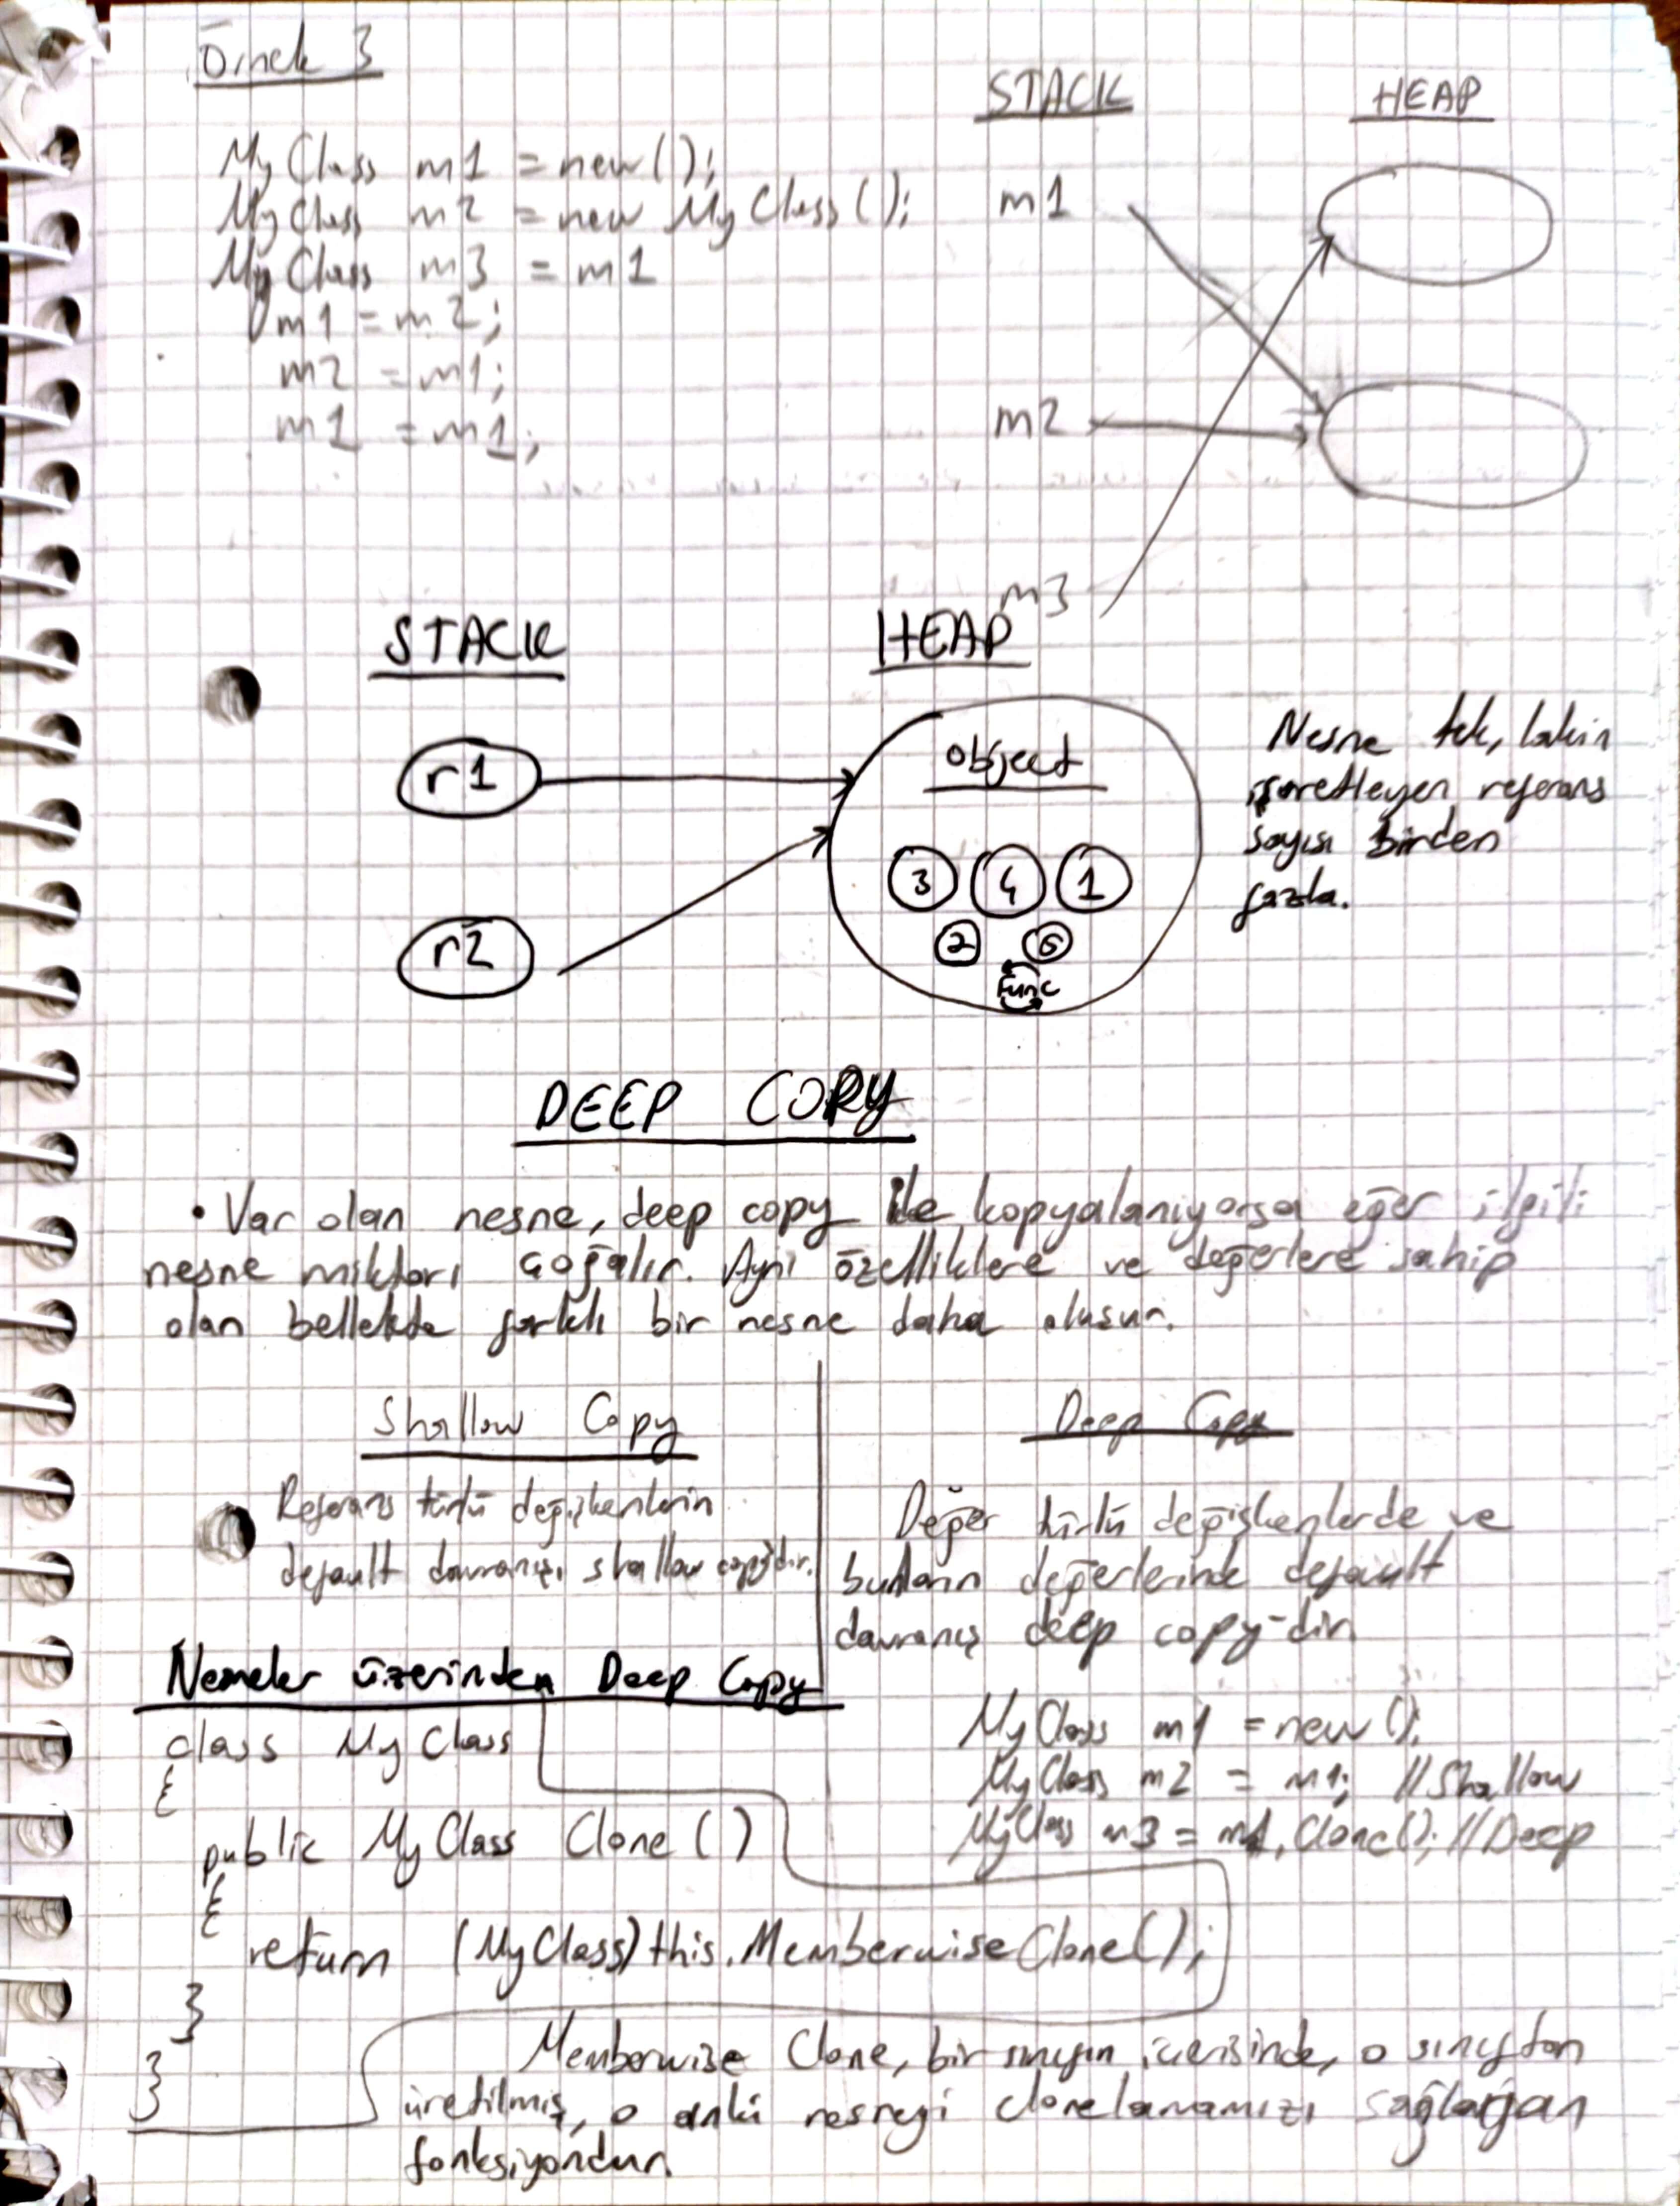 Örnek 3
STACK
HEAP
MyClass m1 = new();
MyClass m2 = new MyClass();
MyClass m3 = m1
m1 = m2;
m2 = m1;
m1 = m1;
m1
m2
m3
STACK
HEAP
r1
r2
object
3 4 1
2 5
Func
Nesne tek, lakin
işaretleyen referans
sayısı birden
fazla.
DEEP COPY
• Var olan nesne, deep copy ile kopyalanıyorsa eğer ilgili
nesne miktarı çoğalır. Aynı özelliklere ve değerlere sahip
olan bellekte farklı bir nesne daha oluşur.
Shallow Copy
Referans türlü değişkenlerin
default davranışı shallow copy'dir.
Deep Copy
Değer türlü değişkenlerde ve
bunların değerlerinde default
davranış deep copy-dir.
Nesneler üzerinden Deep Copy
class MyClass
{
public MyClass Clone()
{
return (MyClass)this.MemberwiseClone();
}
}
MyClass m1 = new();
MyClass m2 = m1; //Shallow
MyClass m3 = m1.Clone(); //Deep
Memberwise Clone, bir sınıfın içerisinde, o sınıftan
üretilmiş, o anki nesneyi clonelamamızı sağlayan
fonksiyondur.